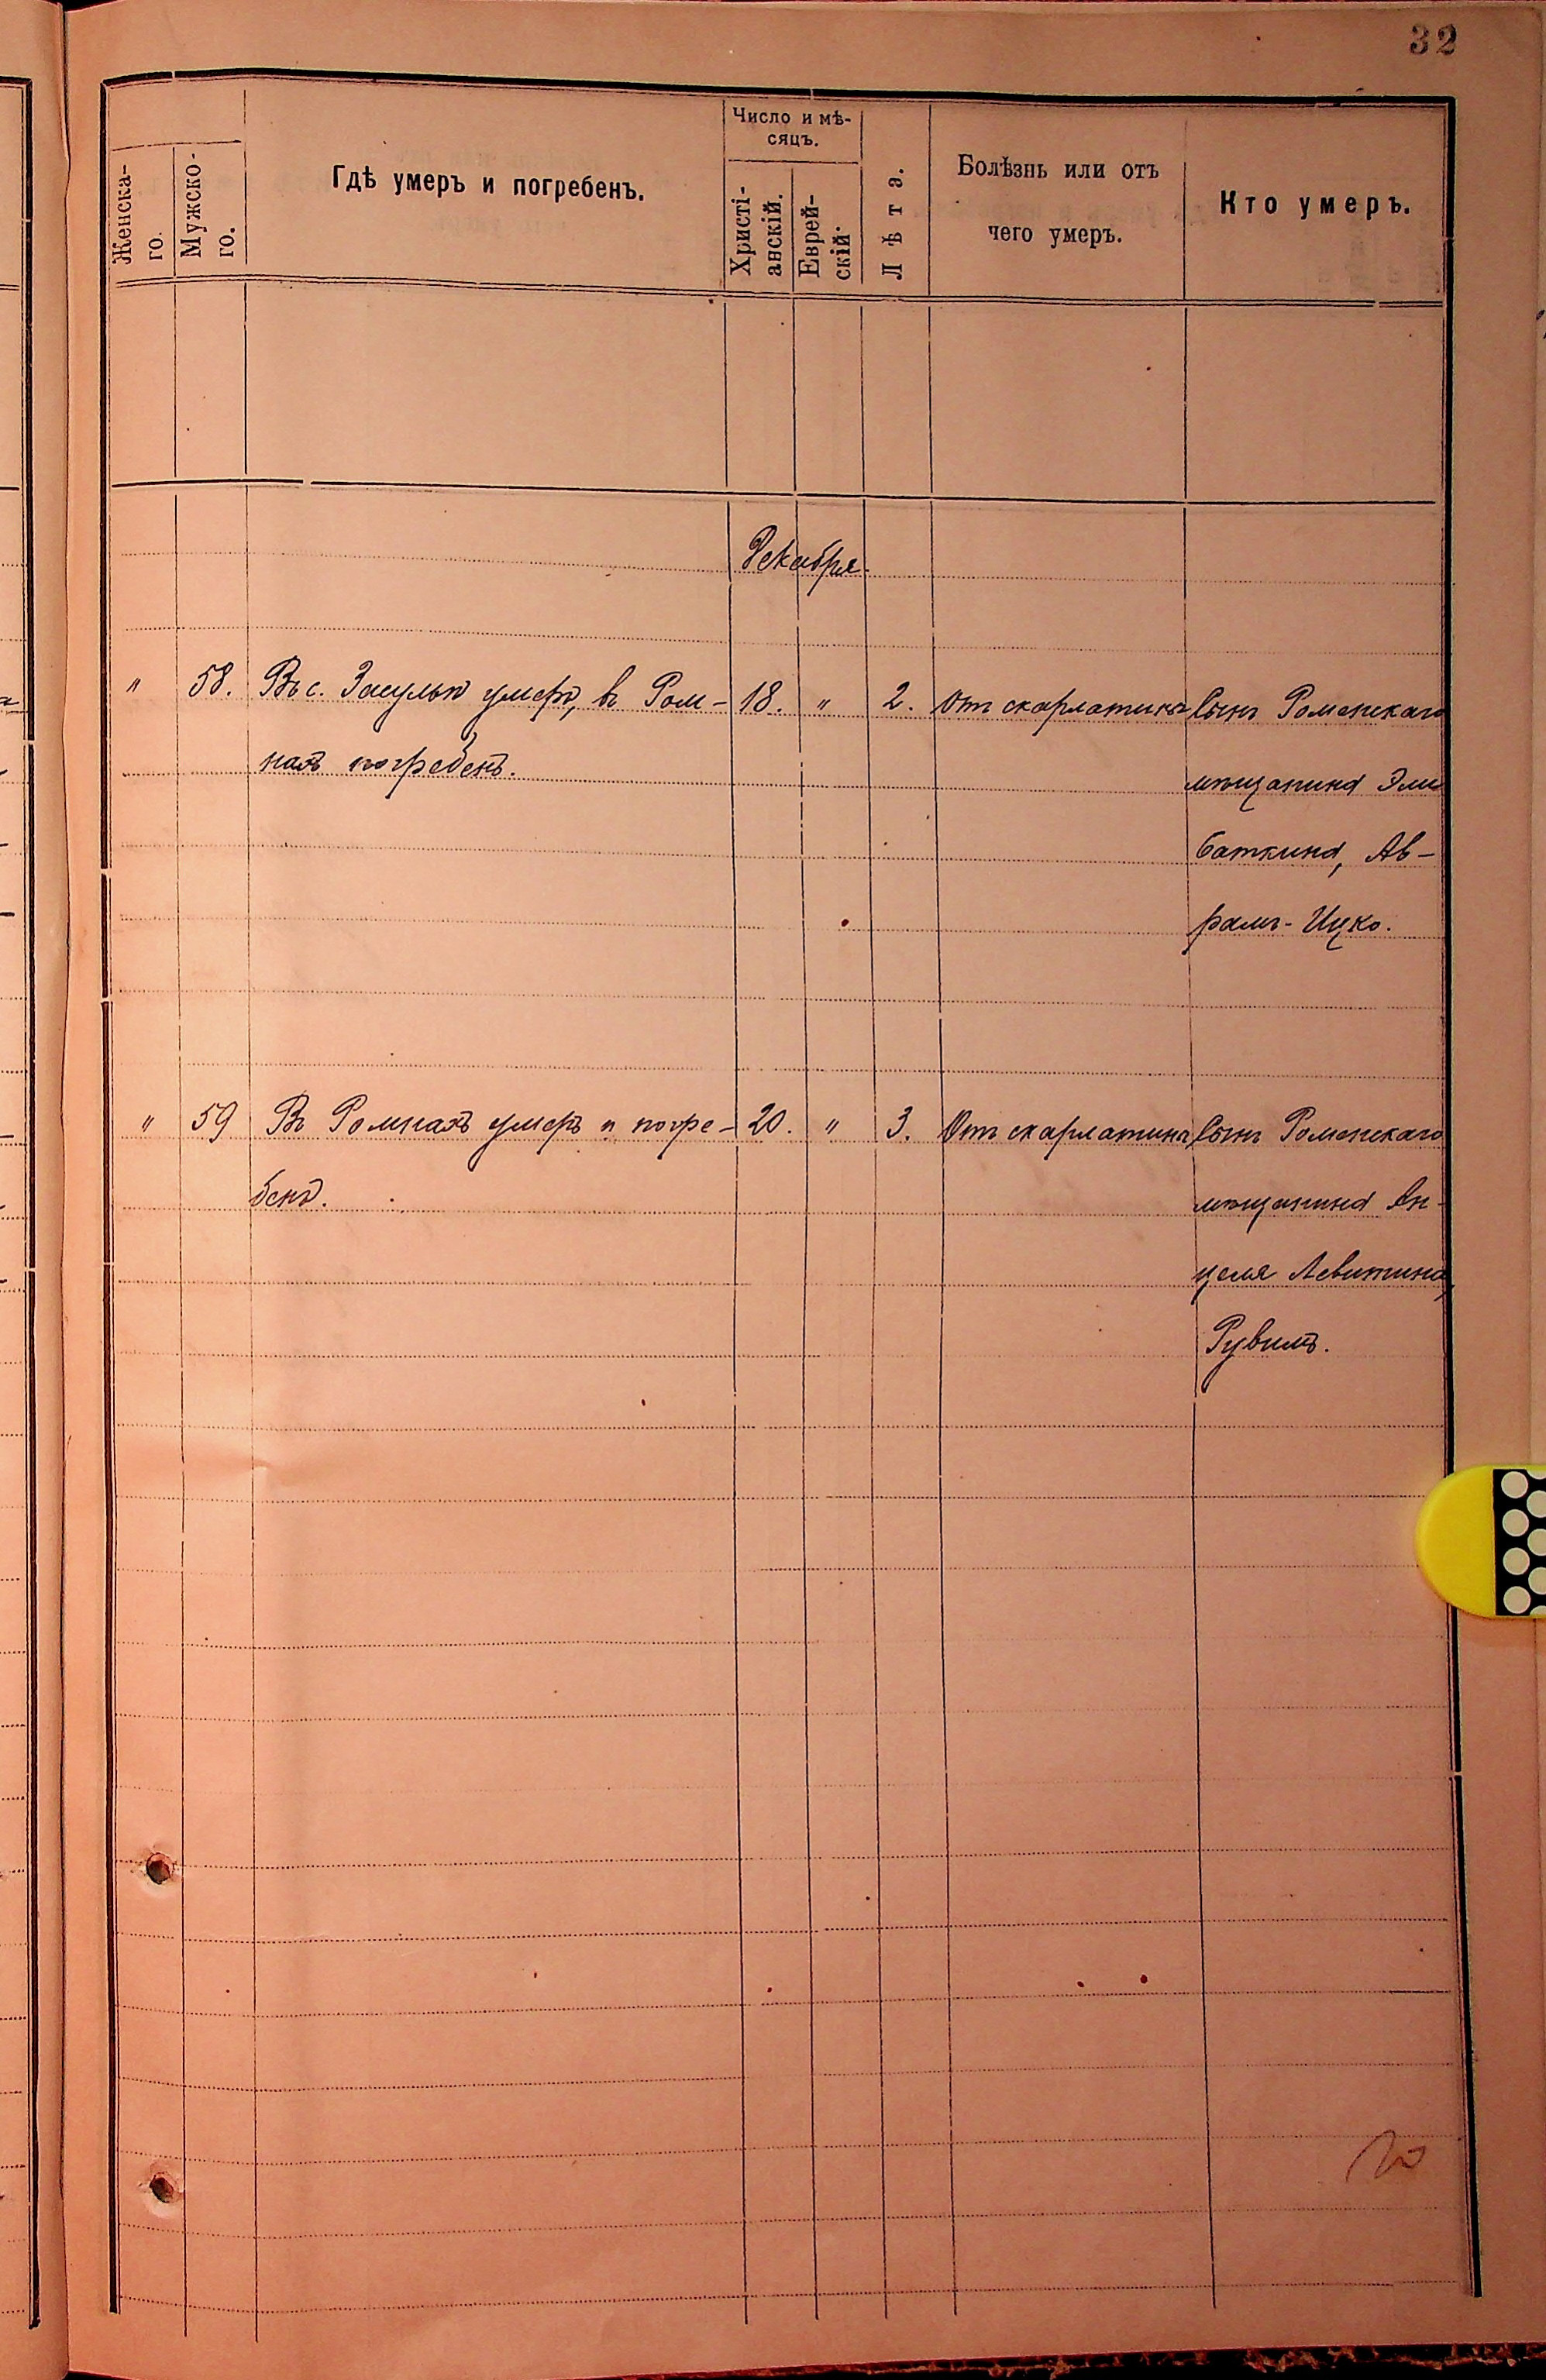 32
Женска-
го.
Мужско-
го.
Гдѣ умеръ и погребенъ.
Число и мѣ-
сяцъ.
Христі-
анскій.
Еврей-
скій.
Лѣта.
Болѣзнь или отъ
чего умеръ.
Кто умеръ.
Декабря.
" 58. Въ с. Засульѣ умеръ, въ Ром- 18. " 2. Отъ скарлатины Сынъ Роменскаго
нахъ погребенъ. мѣщанина Эли
Баткина, Ав-
рамъ-Ицко.
" 59 Въ Ромнахъ умеръ и погре- 20. " 3. Отъ скарлатины Сынъ Роменскаго
бенъ. мѣщанина Ан-
целя Левитина,
Рувимъ.